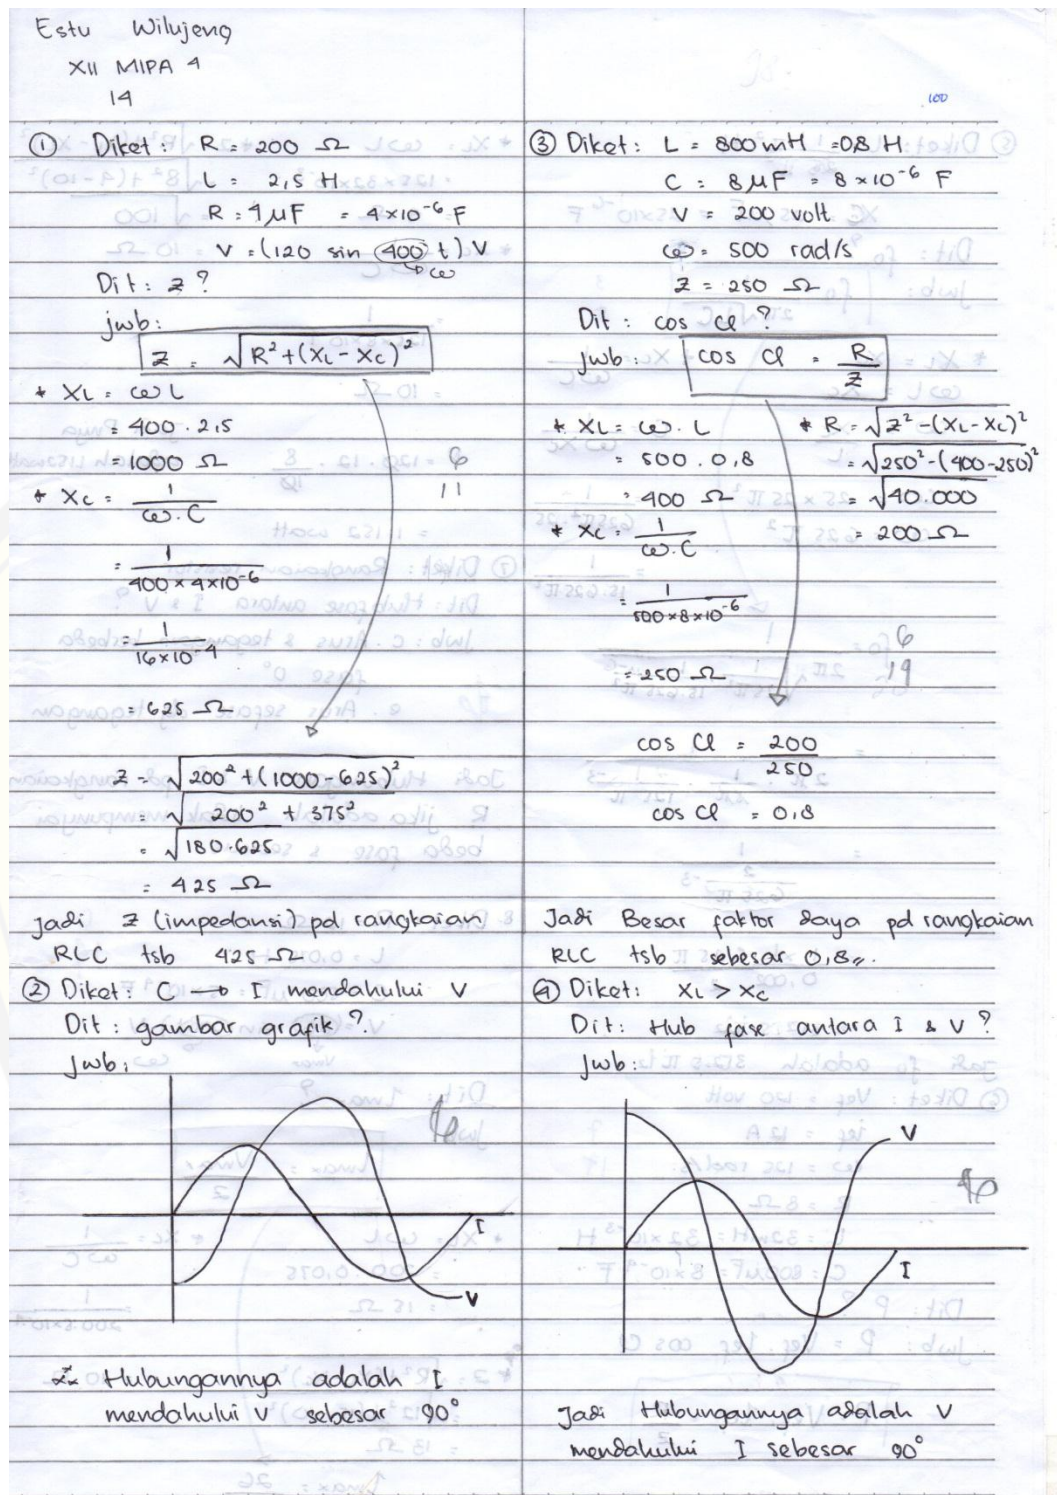 Estu Wilujeng
XII MIPA 4
14
100
① Diket : R = 200 Ω
L = 2,5 H
R = 4 μF = 4×10⁻⁶ F
V = (120 sin 400 t) V
↳ ω
Dit : z ?
jwb :
Z = √R² + (XL - XC)²
* XL = ω L
= 400 . 2,5
= 1000 Ω
* XC = 1 / ω.C
= 1 / 400 × 4×10⁻⁶
= 1 / 16×10⁻⁴
= 625 Ω
6
11
Z = √200² + (1000 - 625)²
= √200² + 375²
= √180.625
= 425 Ω
Jadi Z (impedansi) pd rangkaian
RLC tsb 425 Ω
② Diket : C → I mendahului V
Dit : gambar grafik ?
Jwb :
I
V
Hubungannya adalah I
mendahului V sebesar 90°
③ Diket : L = 800 mH = 0,8 H
C = 8 μF = 8×10⁻⁶ F
V = 200 volt
ω = 500 rad/s
Z = 250 Ω
Dit : cos φ ?
jwb : cos φ = R / Z
* XL = ω . L
= 500 . 0,8
= 400 Ω
* XC = 1 / ω.C
= 1 / 500×8×10⁻⁶
= 250 Ω
* R = √Z² - (XL - XC)²
= √250² - (400-250)²
= √40.000
= 200 Ω
6
19
cos φ = 200 / 250
cos φ = 0,8
Jadi Besar faktor daya pd rangkaian
RLC tsb sebesar 0,8
④ Diket : XL > XC
Dit : Hub fase antara I & V ?
Jwb :
V
I
Jadi Hubungannya adalah V
mendahului I sebesar 90°